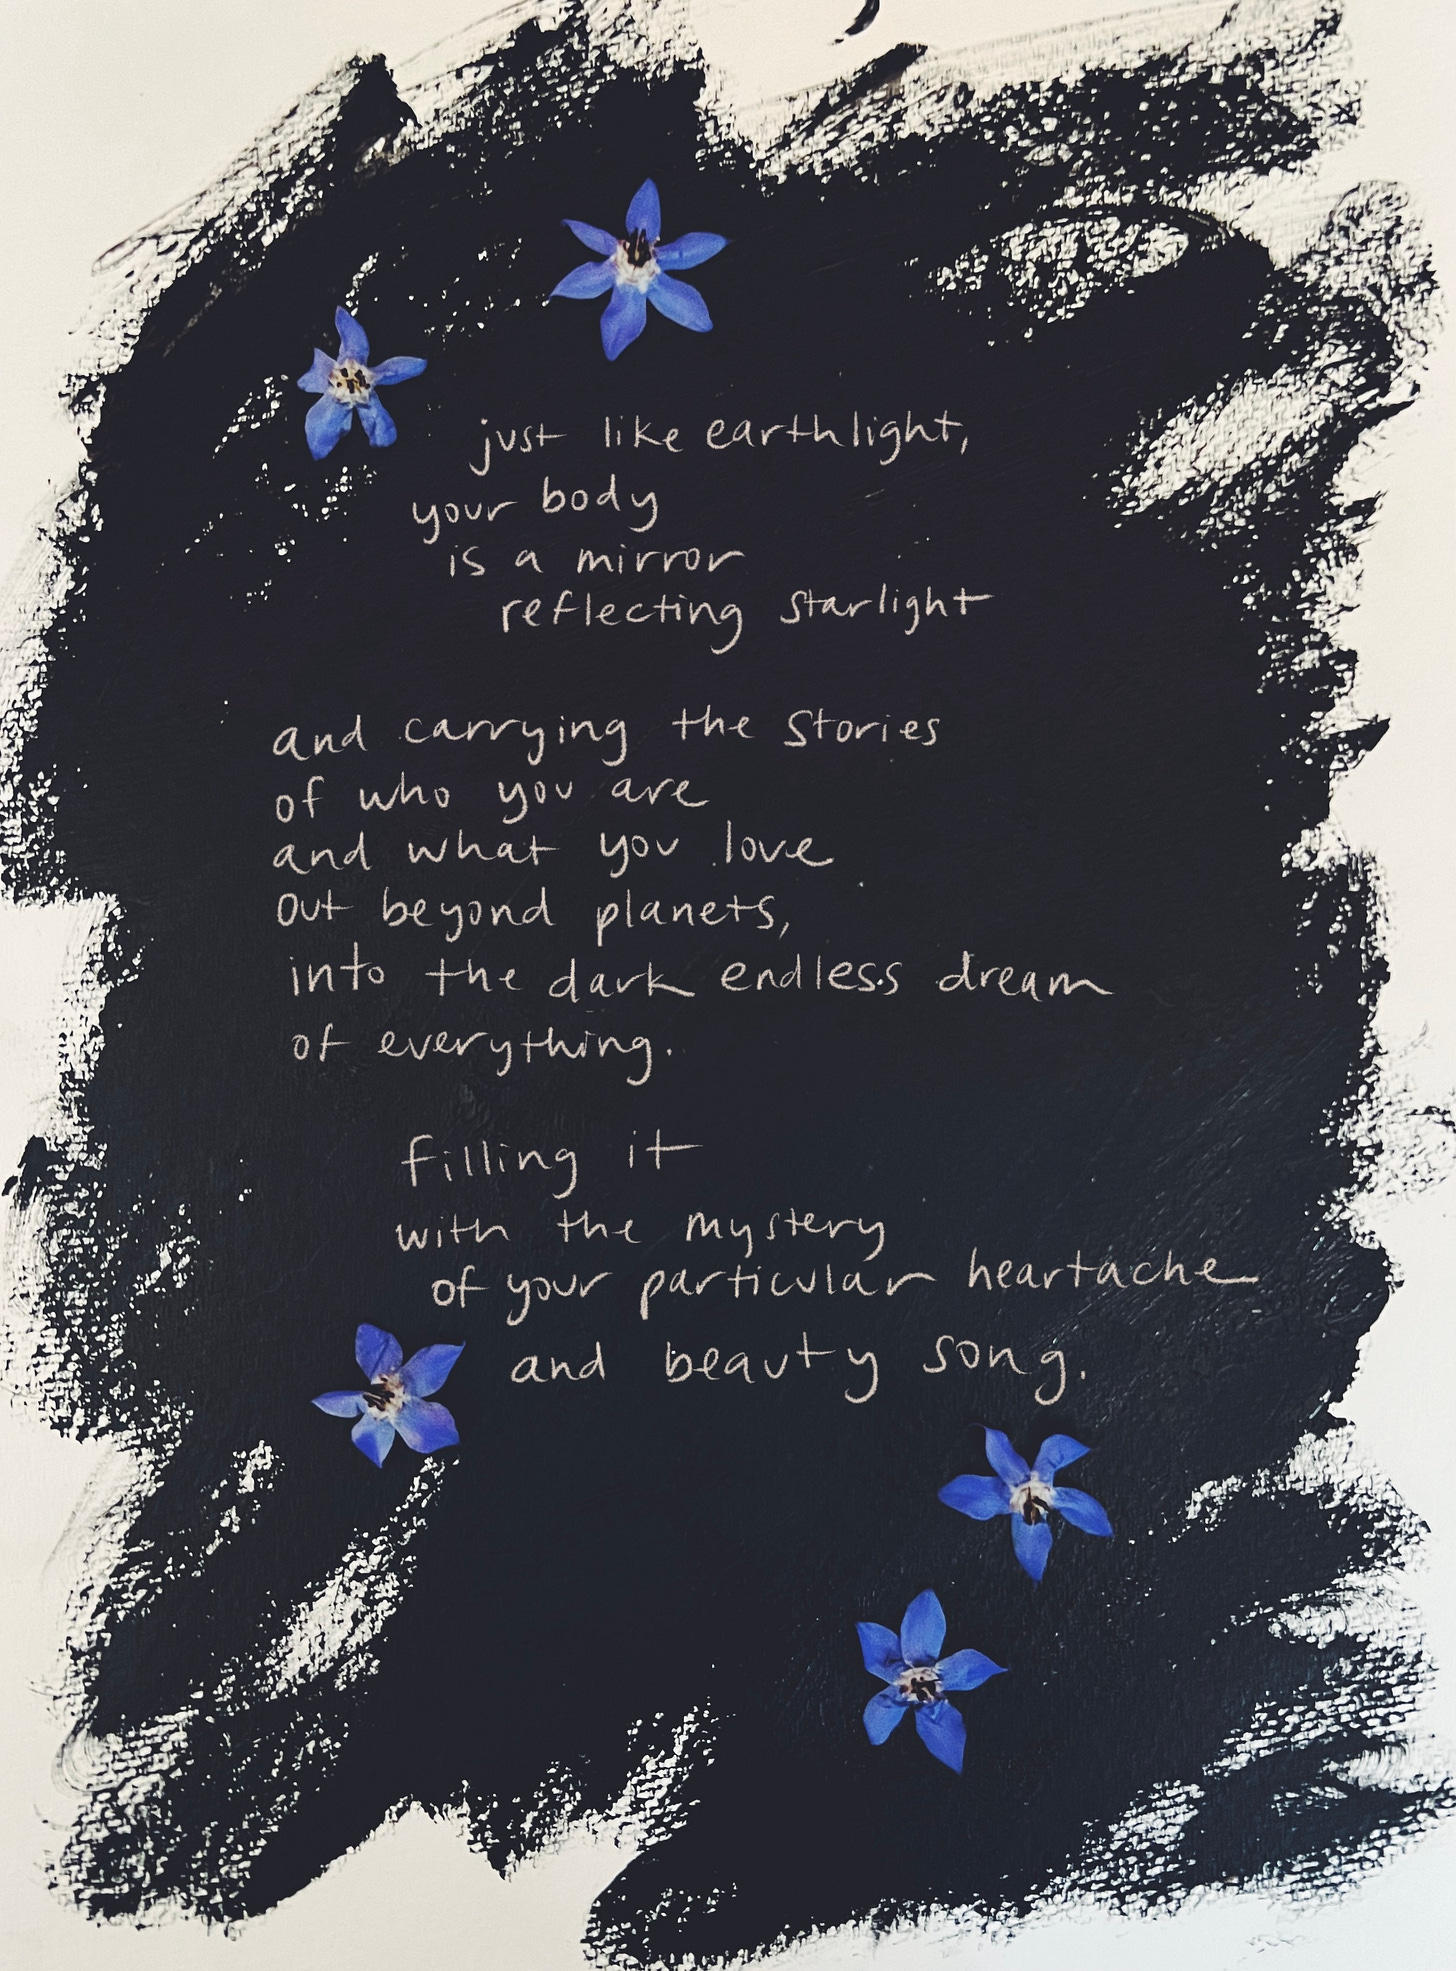 just like earthlight,
your body
is a mirror
reflecting starlight
and carrying the stories
of who you are
and what you love
out beyond planets,
into the dark endless dream
of everything.
filling it
with the mystery
of your particular heartache
and beauty song.